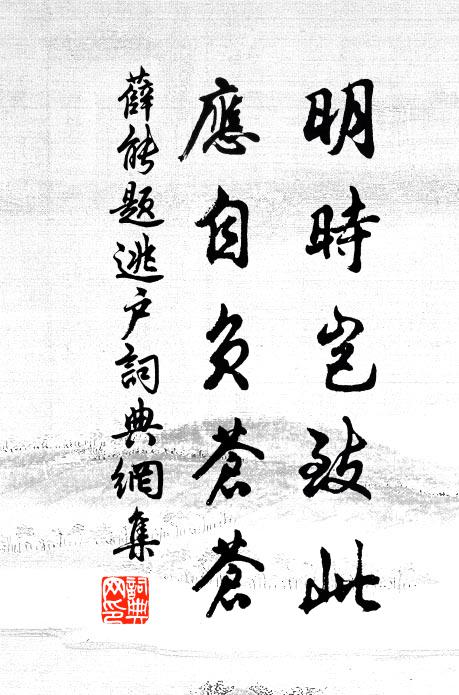 明時豈致此
應自負蒼蒼
薛能題逃戶詞典網集
詞典網印